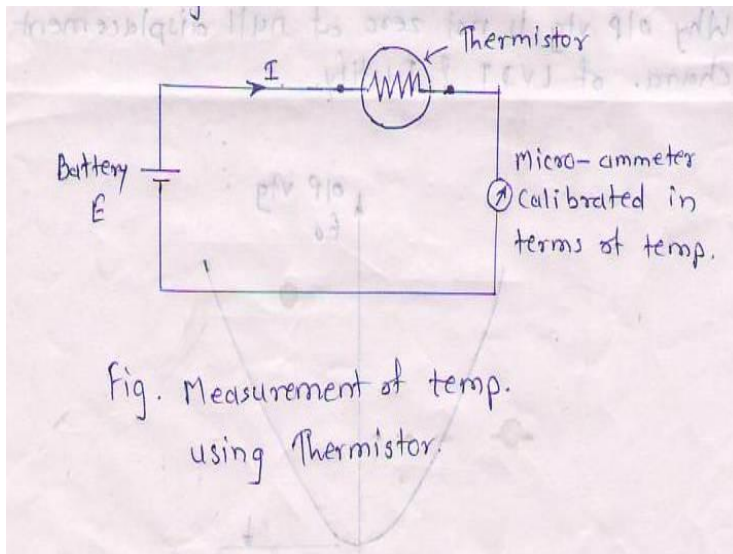 Thermistor
I
Battery
E
Micro-ammeter
Calibrated in
terms of temp.
Fig. Measurement of temp.
using Thermistor.